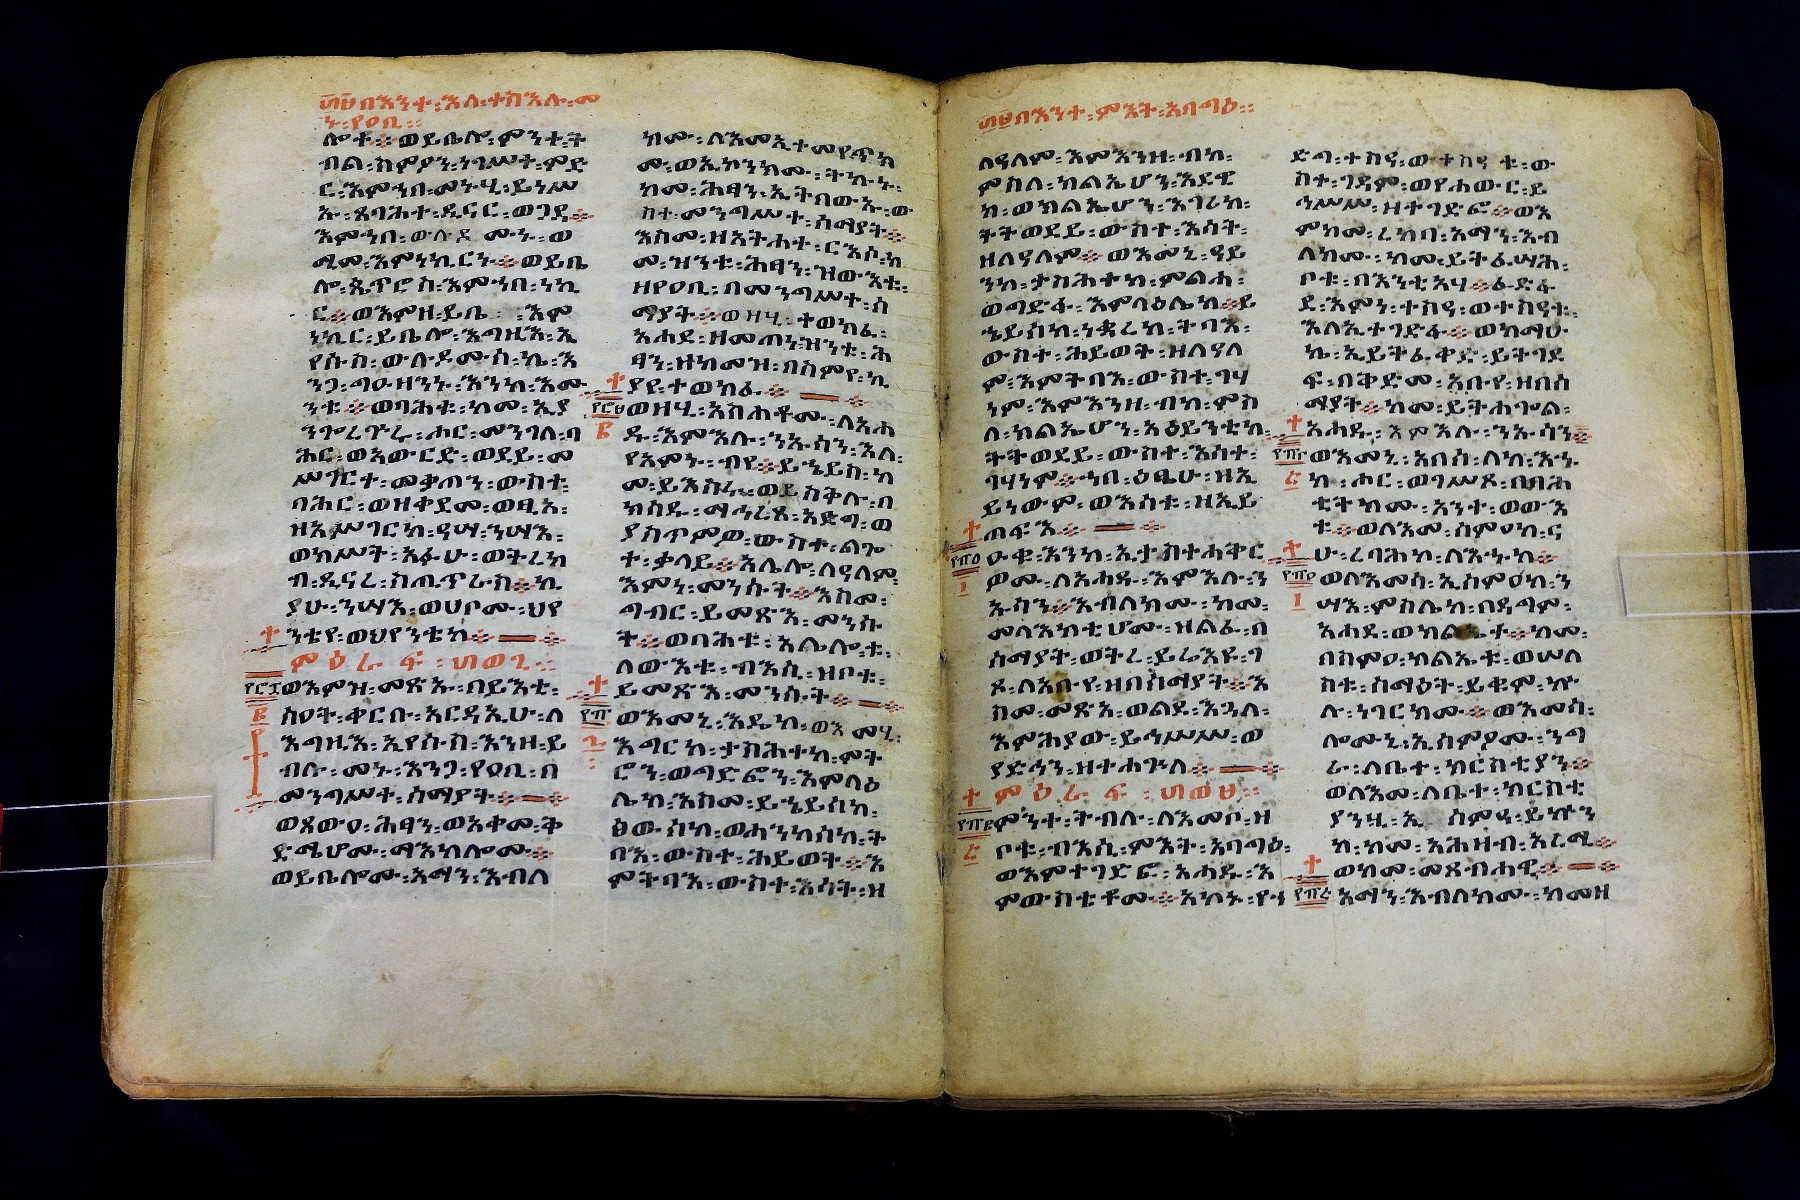 በእንተ፡እለ፡ተስእሉ፡መ
ኑ፡የዐቢ፡፡
ሎተ፡፡ወይቤሎ፡ምንተ፡ት
ብል፡ስምዖን፡ነገሥተ፡ምድ
ር፡እምኀበ፡መኑ፡ሂ፡ይነሥ
ኡ፡ጸባሕተ፡ዲናር፡ወጋዳ፡፡
እምኀበ፡ውሉደ ሙኑ፡ወ
ሚመ፡እምነኪርን፡፡ወይቤ
ሎ፡ጴጥሮስ፡እምኀበ፡ነኪ
ር፡፡ወእምዘ፡ይቤ እም
ነኪር፡ይቤሎ፡እግዚእ፡ኢ
የሱስ፡ውሉዶሙስ፡ኬ፡አ
ንጋ፡ግዑዛን፡እንከ፡እሙ
ንቱ፡፡ወባሕቱ፡ከመ፡ኢያ
ንጐረጕሩ፡ሑር፡መንገለ፡ባ
ሕር፡ወአውርድ፡ወደይ፡መ
ሥገርተ፡መቃጠን፡ውስተ፡
ባሕር፡ወዘቀደመ፡ወፂአ፡
ዘአሥገርከ፡ዓሣ፡ንሣእ፡
ወክሥት፡አፉሁ፡ወትረክ
ብ፡ዲናረ፡ሰጢጥራስ፡፡ኪ
ያሁ፡ንሣእ፡ወሀቦሙ፡ህየ
ንቴየ፡ወህየንቴከ፡፡
ምዕራፍ፡
ወእምዝ፡መጽኡ፡በይእቲ፡
ሰዐት፡ቀርቡ፡አርዳኢሁ፡ለ
እግዚእ፡ኢየሱስ፡እንዘ፡ይ
ብሉ፡መኑ፡እንጋ፡የዐቢ፡በ
መንግሥተ፡ሰማያት፡፡
ወጸውዐ፡ሕፃነ፡ወአቀመ፡ቅ
ድሜሆሙ፡ማእከሎሙ፡፡
ወይቤሎሙ፡አማን፡እብለ
ክሙ፡ለእመኢተመየጥክ
ሙ፡ወኢኮንክሙ፡ትኩኑ፡
ከመ፡ሕፃን፡ኢትበውኡ፡ው
ስተ፡መንግሥተ፡ሰማያት፡፡
እስመ፡ዘአትሐተ፡ርእሶ፡ከ
መ፡ዝንቱ፡ሕፃን፡ዝውእቱ፡
ዘየዐቢ፡በመንግሥተ፡ሰ
ማያት፡፡ወዘሂ፡ተወክፈ፡
አሐደ፡ዘመጠነ፡ዝንቱ፡ሕ
ፃን፡ዘከመዝ፡በስምየ፡ኪ
ያየ፡ተወክፈ፡፡
ወዘሂ፡አስሐቶሙ፡ለአሐ
ዱ፡እምእሉ፡ንኡሳን፡እለ፡
የአምኑ፡ብየ፡፡ይኄይስ፡ከ
መ፡ይእስሩ፡ወይስቅሉ፡በ
ክሳዱ፡ማኅረጸ፡አድግ፡ወ
ያስጥምዎ፡ውስተ፡ልጐ
ተ፡ቃላይ፡፡አሌሎ፡ለዓለም፡
እምነ፡መንሱት፡፡እስመ፡
ግብር፡ይመጽእ፡መንሱ
ት፡፡ወባሕቱ፡አሌሎቱ፡
ለውእቱ፡ብእሲ፡ዘቦቱ፡
ይመጽእ፡መንሱት፡፡
ወእመኒ፡እዴከ፡ወእመሂ፡
እግርከ፡ታስሕተከ፡ምት
ሮን፡ወግድፎን፡እምላዕ
ሌከ፡እስመ፡ይኄይሰከ፡
ፅውሰከ፡ወሐንካሰከ፡ት
ባእ፡ውስተ፡ሕይወት፡፡እ
ምትባእ፡ውስተ፡እሳት፡ዘ
በእንተ፡ምእት፡አባግዕ፡፡
ለዓለም፡እምእንዘ፡ብከ፡
ምስለ፡ክልኤሆን፡እደዊ
ከ፡ወክልኤሆን፡እገሪከ፡
ትትወደይ፡ውስተ፡እሳት፡
ዘለዓለም፡፡ወእመኒ፡ዓይ
ንከ፡ታስሕተከ፡ምልሐ፡
ወግድፋ፡እምላዕሌከ፡፡ይ
ኄይሰከ፡ነቋረከ፡ትባእ፡
ውስተ፡ሕይወት፡ዘለዓለ
ም፡እምትባእ፡ውስተ፡ገሃ
ነም፡እምእንዘ፡ብከ፡ምስ
ለ፡ክልኤሆን፡አዕይንቲከ፡
ትትወደይ፡ውስተ፡እሳተ፡
ገሃነም፡፡ኀበ፡ዕፄሁ፡ዘኢ
ይነውም፡ወእሳቱ፡ዘኢይ
ጠፍእ፡፡
ዑቁ፡እንከ፡ኢታስተሐቅር
ዎሙ፡ለአሐዱ፡እምእሉ፡ን
ኡሳን፡፡እብለክሙ፡ከመ፡
መላእክቲሆሙ፡ዘልፈ፡በ
ሰማያት፡ወትረ፡ይሬእዩ፡ገ
ጾ፡ለአቡየ፡ዘበሰማያት፡፡እ
ስመ፡መጽአ፡ወልደ፡እጓለ፡
እምሕያው፡ይኅሥሥ፡ወ
ያድኅን፡ዘተሐጕለ፡፡
ምዕራፍ፡
ምንተ፡ትብሉ፡ለእመቦ፡ዘ
ቦቱ፡ብእሲ፡ምእት፡አባግዕ፡
ወእምተገድፎ፡አሐዱ፡እ
ምውስቴቶሙ፡፡አኮኑ፡የኀ
ድግ፡ተስዓ፡ወተስዓ ቱ፡ው
ስተ፡ገዳም፡ወየሐውር፡ይ
ኅሥሥ፡ዘተገድፎ፡፡ወእ
ምከመ፡ረከቦ፡አማን፡እብ
ለክሙ፡ከመ፡ይትፌሣሕ፡
ቦቱ፡በእንቲአሁ፡፡ፈድፋ
ደ፡እምነ፡ተስዓ፡ወተስዓቱ፡
እለኢተገድፉ፡፡ወከማሁ
ኬ፡ኢይትፈቀድ፡ይትገደ
ፍ፡በቅድመ፡አቡየ፡ዘበሰ
ማያት፡፡ከመ፡ይትሐጐል፡
አሐዱ፡እምእሉ፡ንኡሳን፡፡
ወእመኒ፡አበሰ፡ለከ፡እኁ
ከ፡ሑር፡ወገሥጾ፡በባሕ
ቲትክሙ፡አንተ፡ወውእ
ቱ፡፡ወለእመ፡ሰምዐከ፡ና
ሁ፡ረባሕከ፡ለእኁከ፡፡
ወለእመሰ፡ኢሰምዐከ፡ን
ሣእ፡ምስሌከ፡በዳግም፡
አሐደ፡ወክልኤተ፡፡ከመ፡
በስምዐ፡ክልኤቱ፡ወሠለ
ስቱ፡ሰማዕት፡ይቁም፡ኵ
ሉ፡ነገርክሙ፡፡ወእመሰ፡
ሎሙኒ፡ኢሰምዖሙ፡ንግ
ራ፡ለቤተ፡ክርስቲያን፡፡
ወለእመ፡ለቤተ፡ክርስቲ
ያንሂ፡ኢ ሰምዓ፡ይኩን
ከ፡ከመ፡አሕዛብ፡አረሚ፡፡
ወከመ፡መጸብሓዊ፡፡
አማን፡እብለክሙ፡ከመዘ